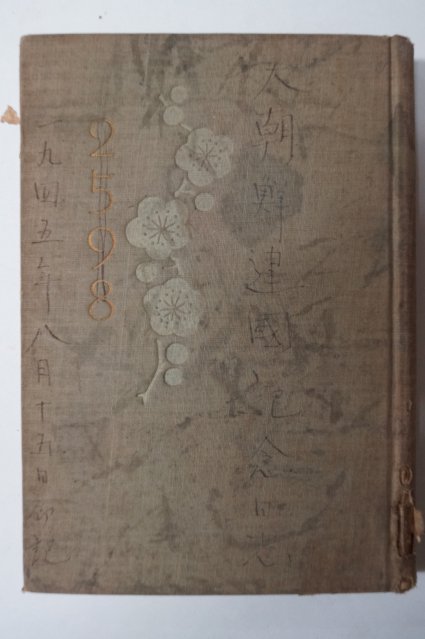 大朝鮮建國紀念日誌
2598
一九四五年八月十五日記